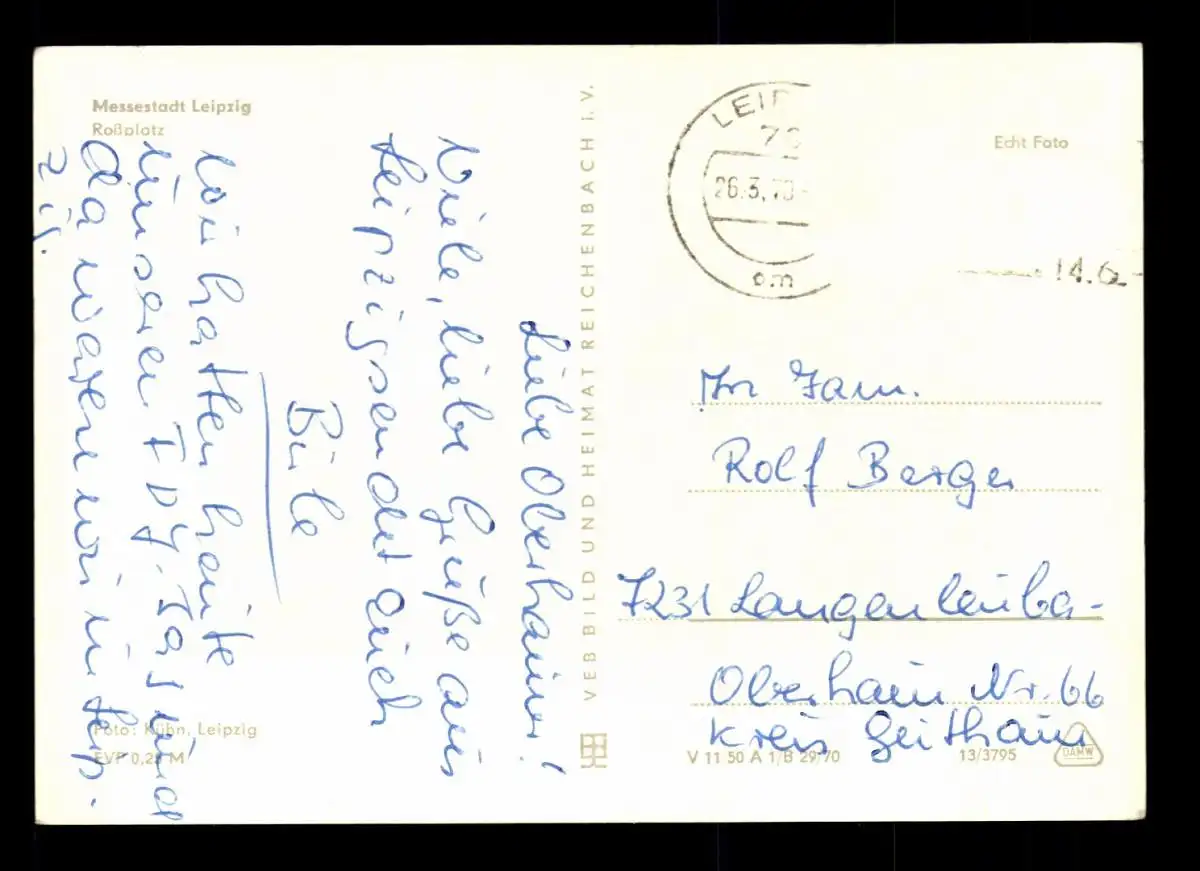 Messestadt Leipzig
Roßplatz
Liebe Oberhainer!
Viele, liebe Grüße aus
Leipzig sendet Euch
Wir hatten heute
unseren FDJ-Tag und
da waren wir in Leip-
zig.
Foto: Kühn, Leipzig
EVP 0,25 M
VEB BILD UND HEIMAT REICHENBACH I. V.
LEIP
70
26.3.70
om
14.6
Echt Foto
An Fam.
Rolf Berger
7231 Langenleuba-
Oberhain Nr. 66
Kreis Geithain
V 11 50 A 1/B 29/70
13/3795
DAMW